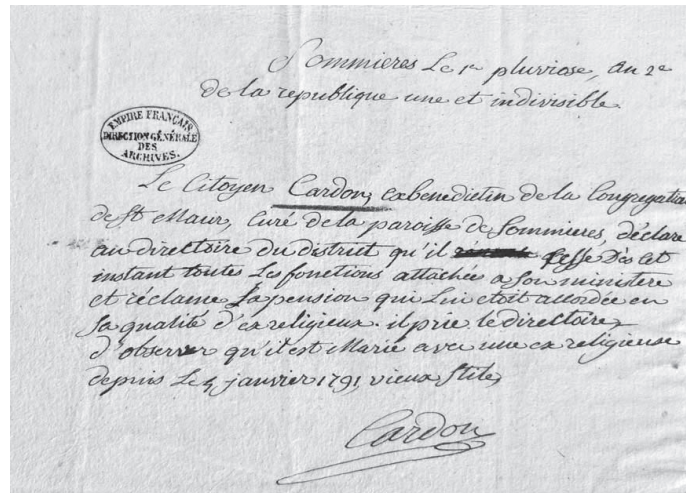 Sommieres Le 1er pluviose, an 2e
de la republique une et indivisible.
EMPIRE FRANÇAIS
DIRECTION GÉNÉRALE
DES
ARCHIVES.
Le Citoyen Cardon, exbenedictin de la Congregation
de St Maur, Curé de la paroisse de Sommieres, déclare
au directoire du district qu'il cesse Dès cet
instant toutes Les fonctions attachée a Son ministere
et réclame Sa pension qui Lui etoit accordée en
Sa qualité d'ex religieux. il prie le directoire
d'observer qu'il est Marié avec une ex religieuse
depuis Le janvier 1791, vieux Stile,
Cardon